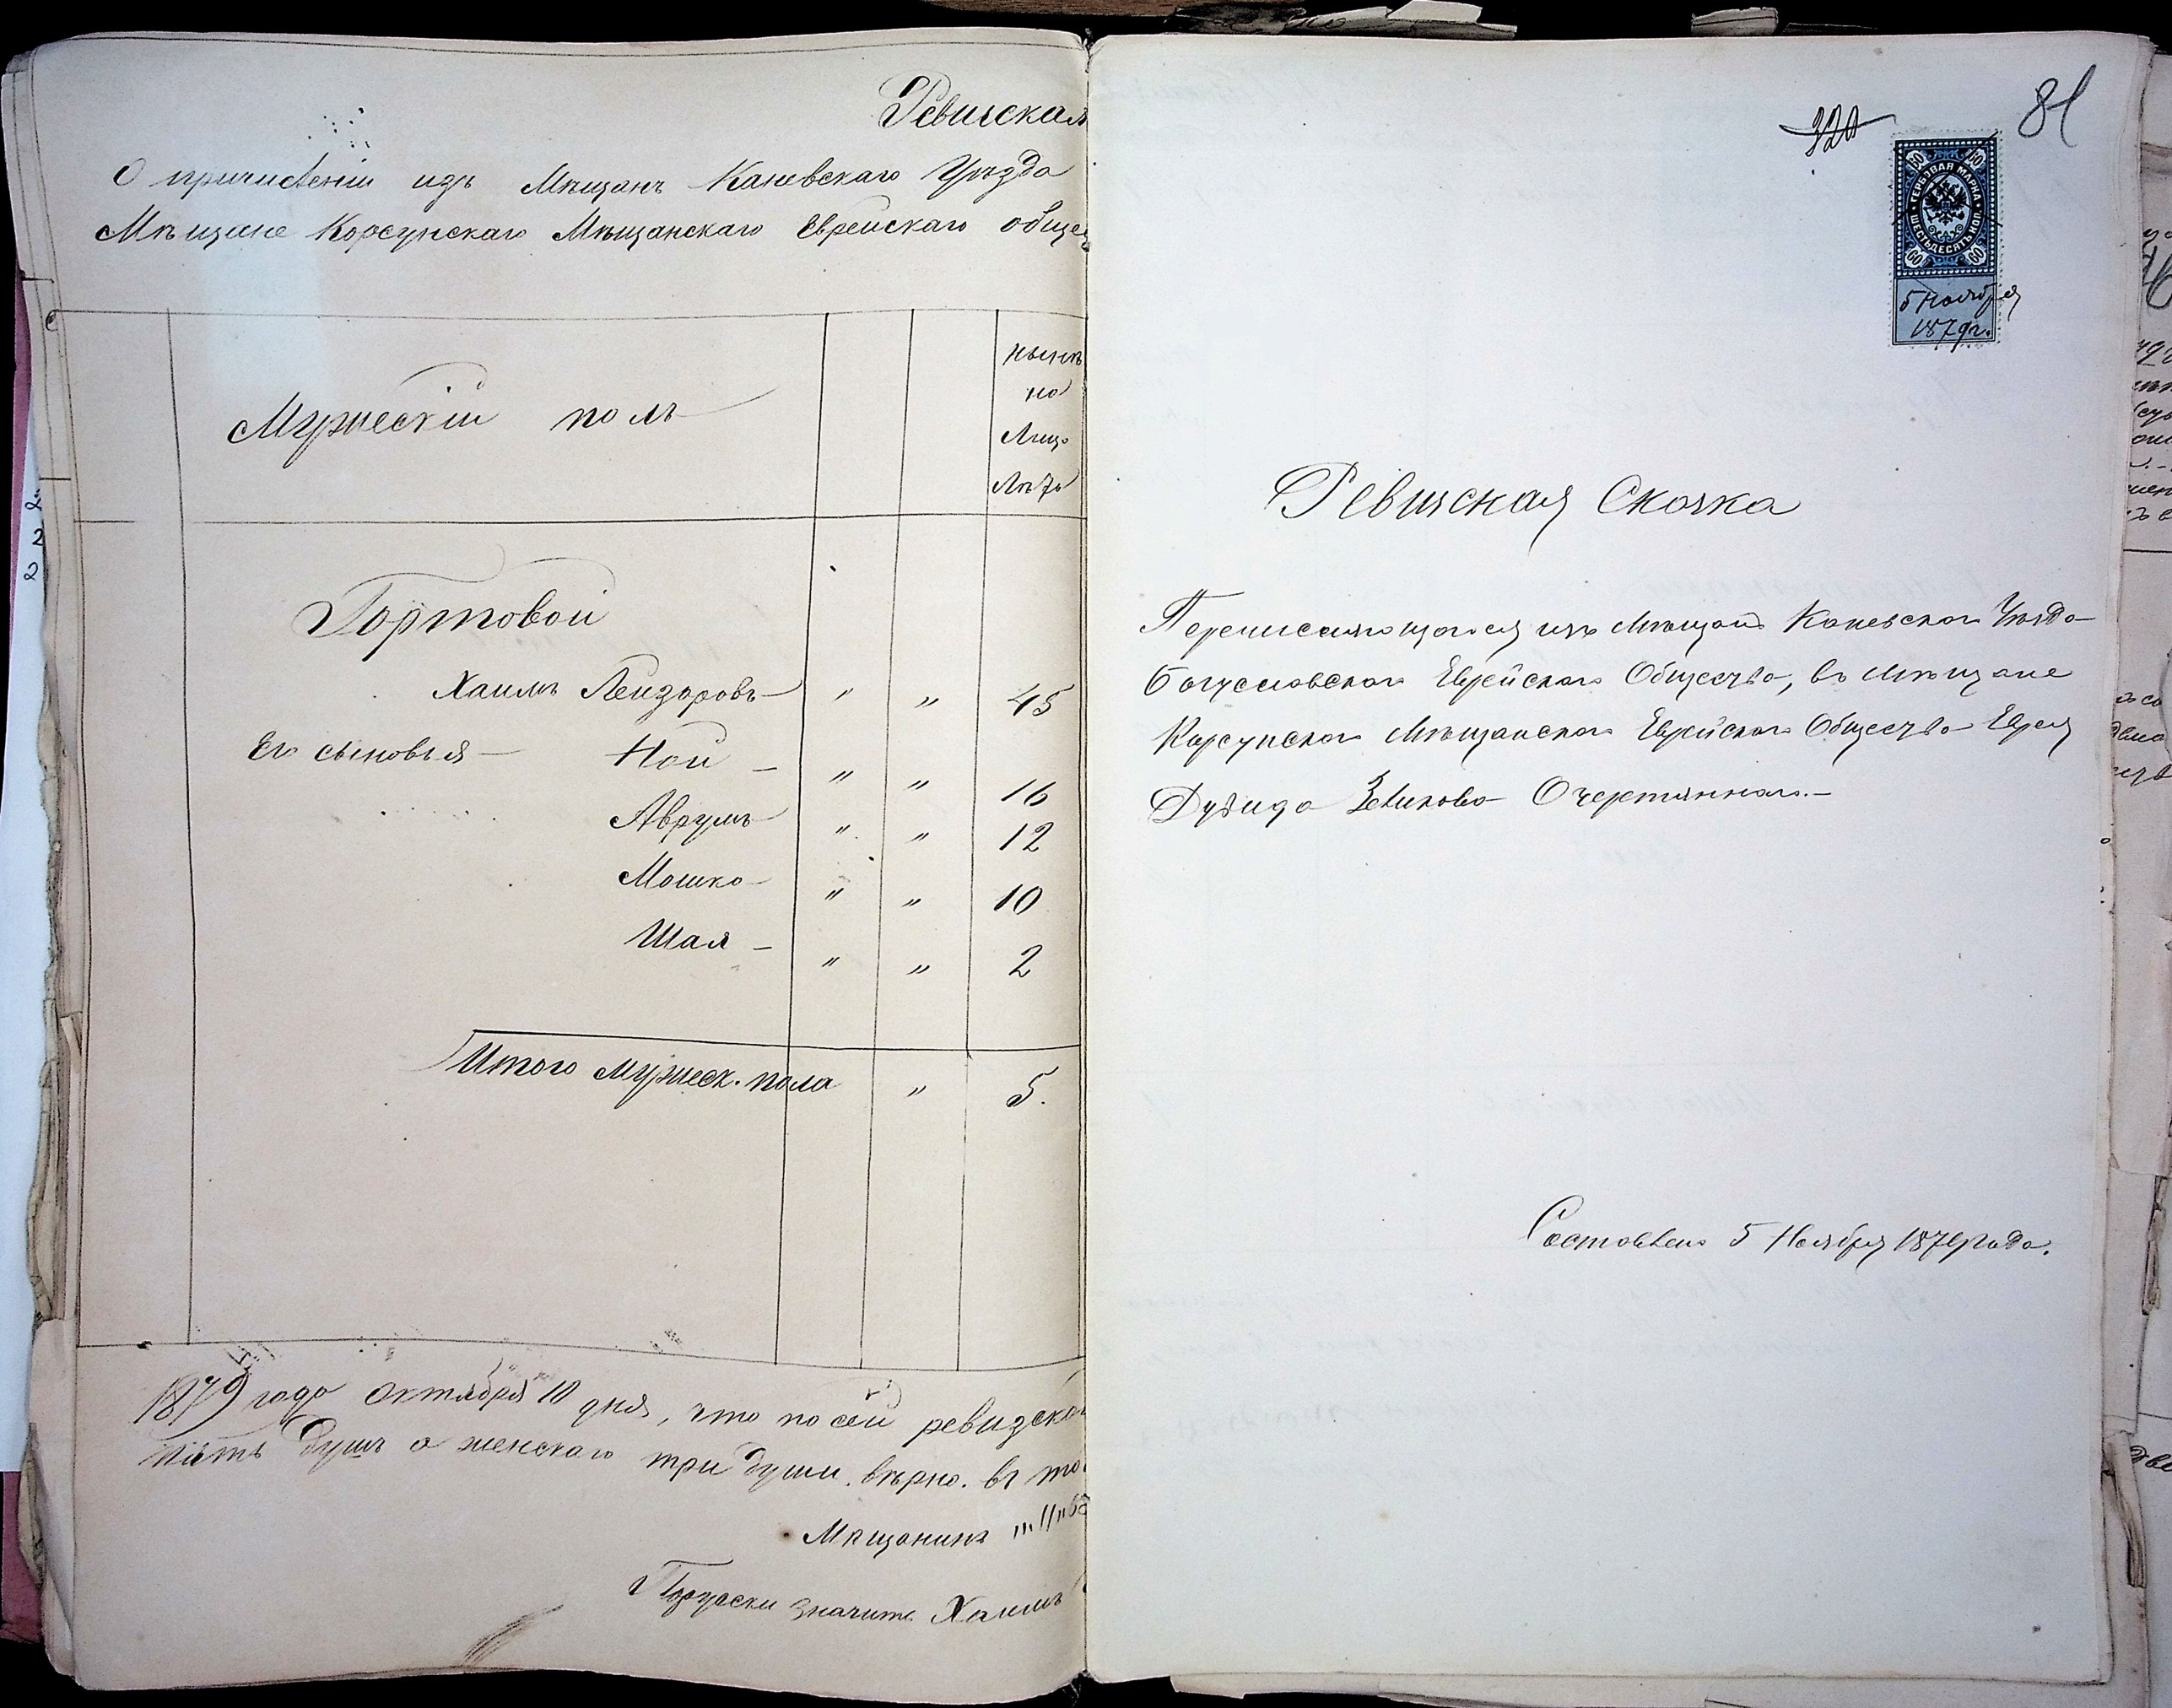 Ревизская
О причисленіи изъ Мѣщанъ Каневскаго Уѣзда
Мѣщане Корсунскаго Мѣщанскаго Еврейскаго общес
Мужескій полъ
нынѣ
на
Лицо
Лѣта
Портовой
Хаимъ Лейзоровъ " " 45
Его сыновья — Ной — " " 16
Аврумъ " " 12
Мошко " " 10
Шая — " " 2
Итого мужеск. пола " 5.
1879 года октября 10 дня, что по сей ревизской
пять душъ а женскаго три души вѣрно. въ то
Мѣщанинъ
Порусски значитъ Хаимъ
320
81
60 60
ГЕРБОВАЯ МАРКА
ШЕСТЬДЕСЯТЪ КОП.
60 60
5 Ноября
1879 г.
Ревизская Сказка
Переписывающагося изъ Мѣщанъ Каневскаго Уѣзда
Богуславскаго Еврейскаго Общества, въ Мѣщане
Корсунскаго Мѣщанскаго Еврейскаго Общества Еврея
Дувида Зеликова Очеретяннаго.—
Составлена 5 Ноября 1879 года.